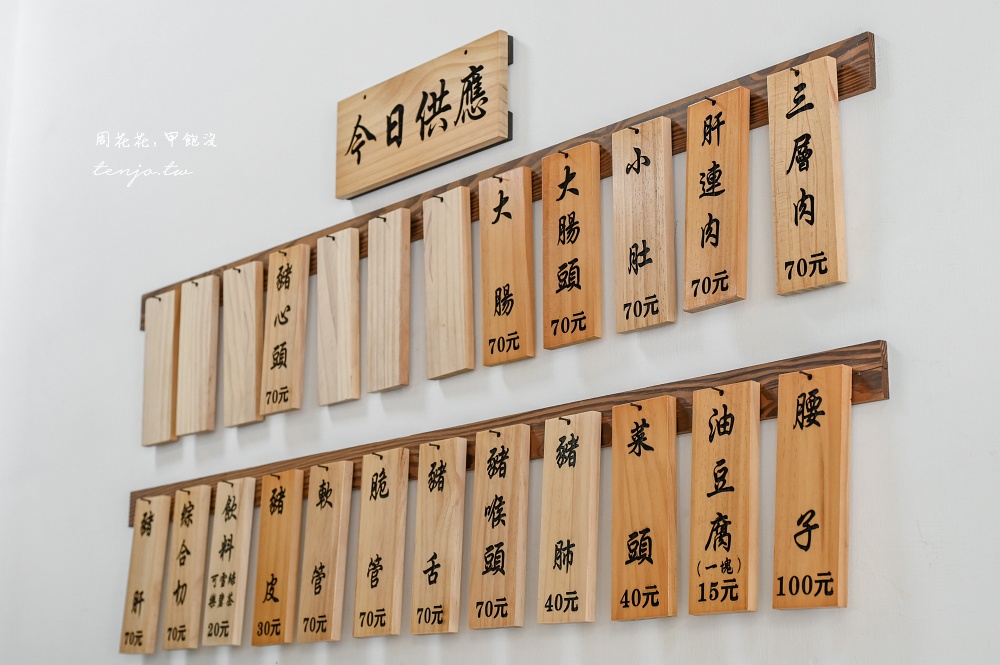 周花花,甲飽沒
tenjo.tw
今日供應
三層肉
70元
肝連肉
70元
小肚
70元
大腸頭
70元
大腸
70元
豬心頭
70元
腰子
100元
油豆腐
(一塊)
15元
菜頭
40元
豬肺
40元
豬喉頭
70元
豬舌
70元
脆管
70元
軟管
70元
豬皮
30元
飲料
可樂
雪碧
綠茶
20元
綜合切
70元
豬肝
70元